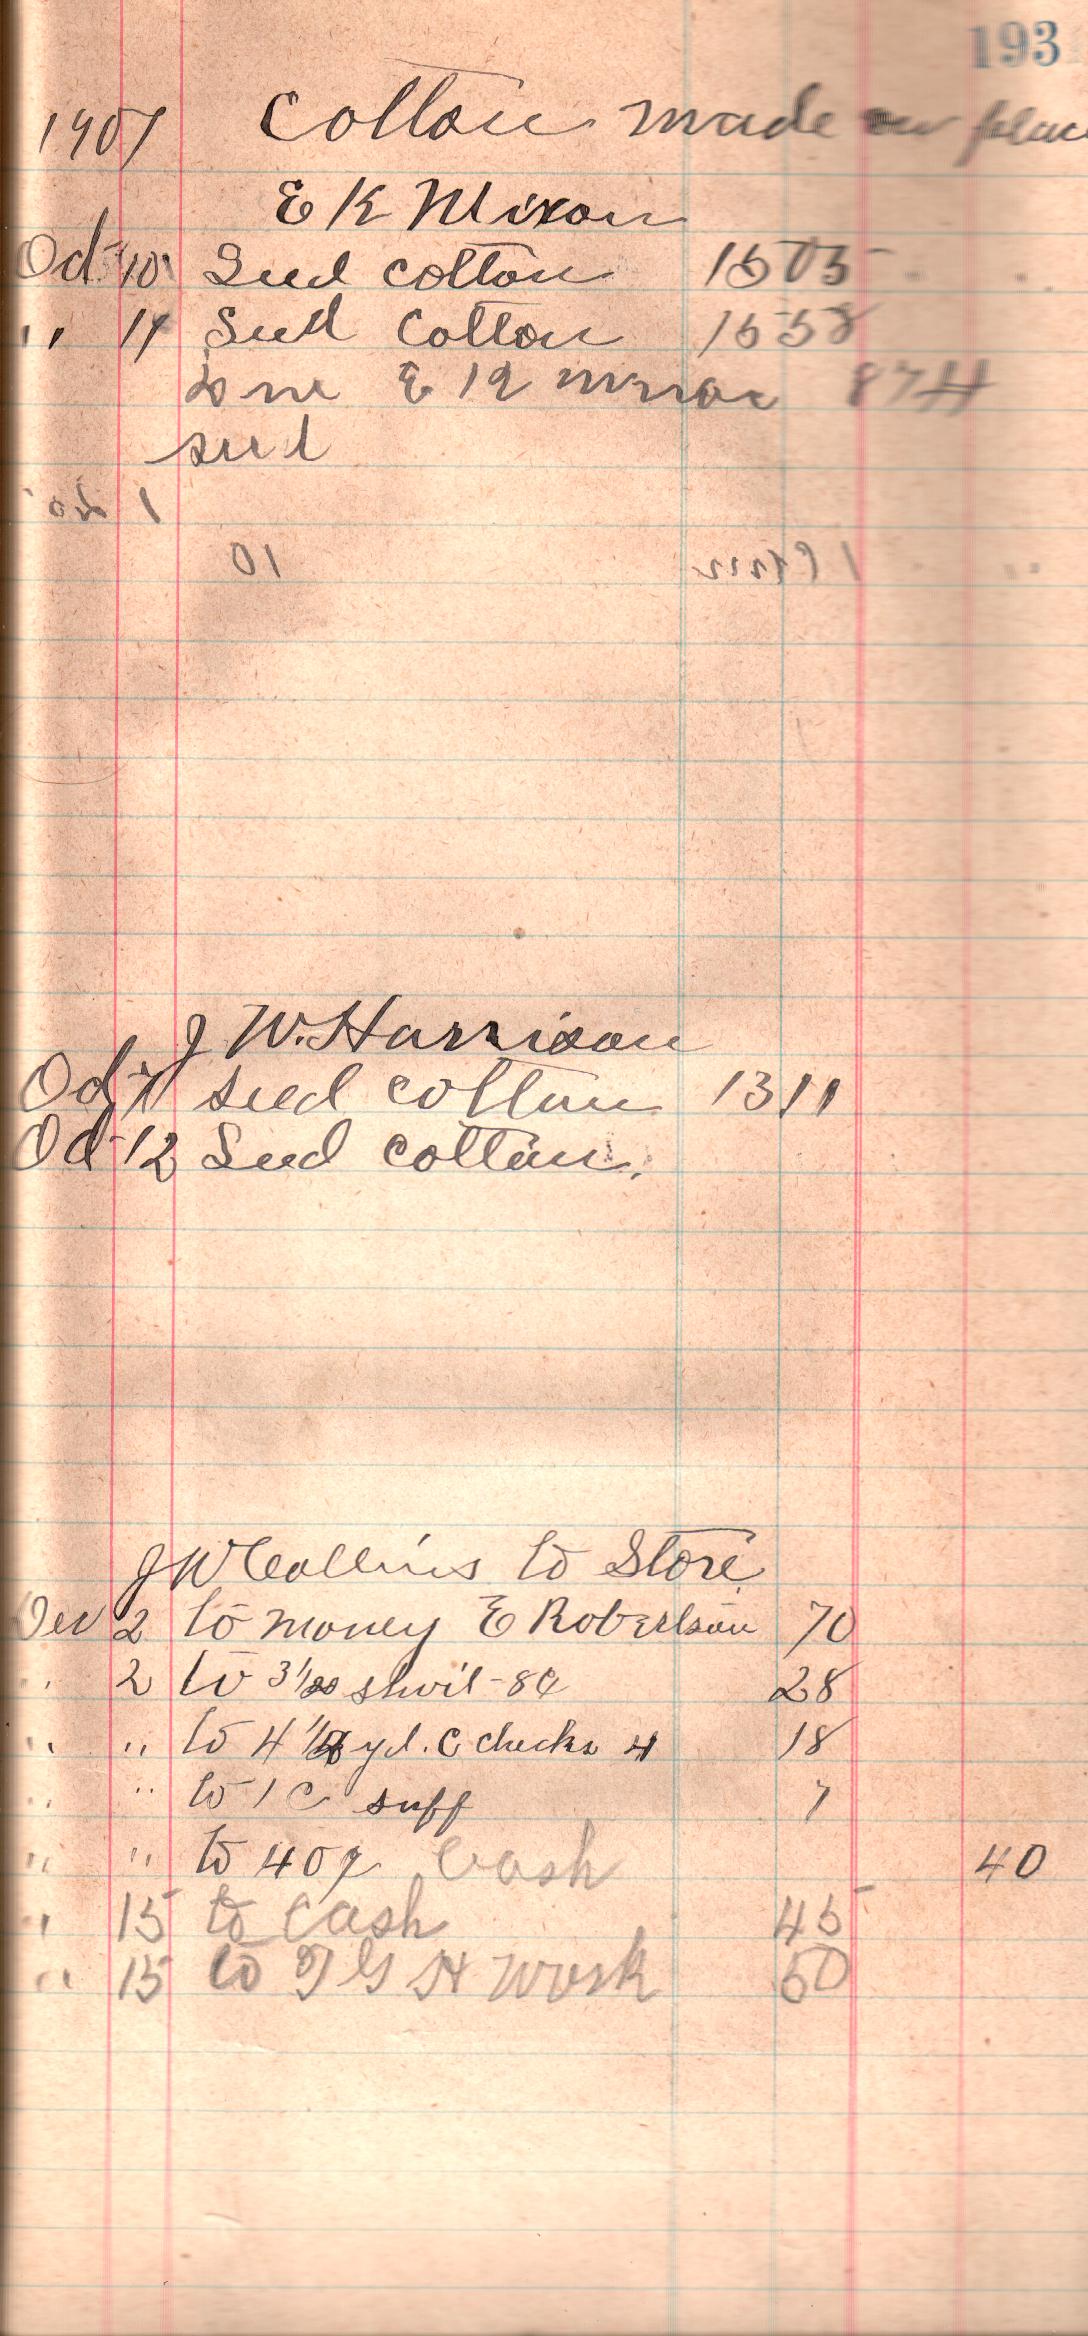 193
1907 Cotton made on place
E K Mixon
Oct 10 Seed cotton 1505
" 11 Seed Cotton 1558
Due E K Mixon 874
seed
J W. Harrison
Oct 7 seed cotton 1311
Oct 12 Seed cotton.
J W Collins to Store
Dec 2 to money E Robertson 70
" 2 to 3 1/2 8¢ 28
" " to 4 1/2 yd. C checks 4 18
" " to 1 C snff 7
" " to 40 Cash 40
" 15 to Cash 45
" 15 to G H Work 50